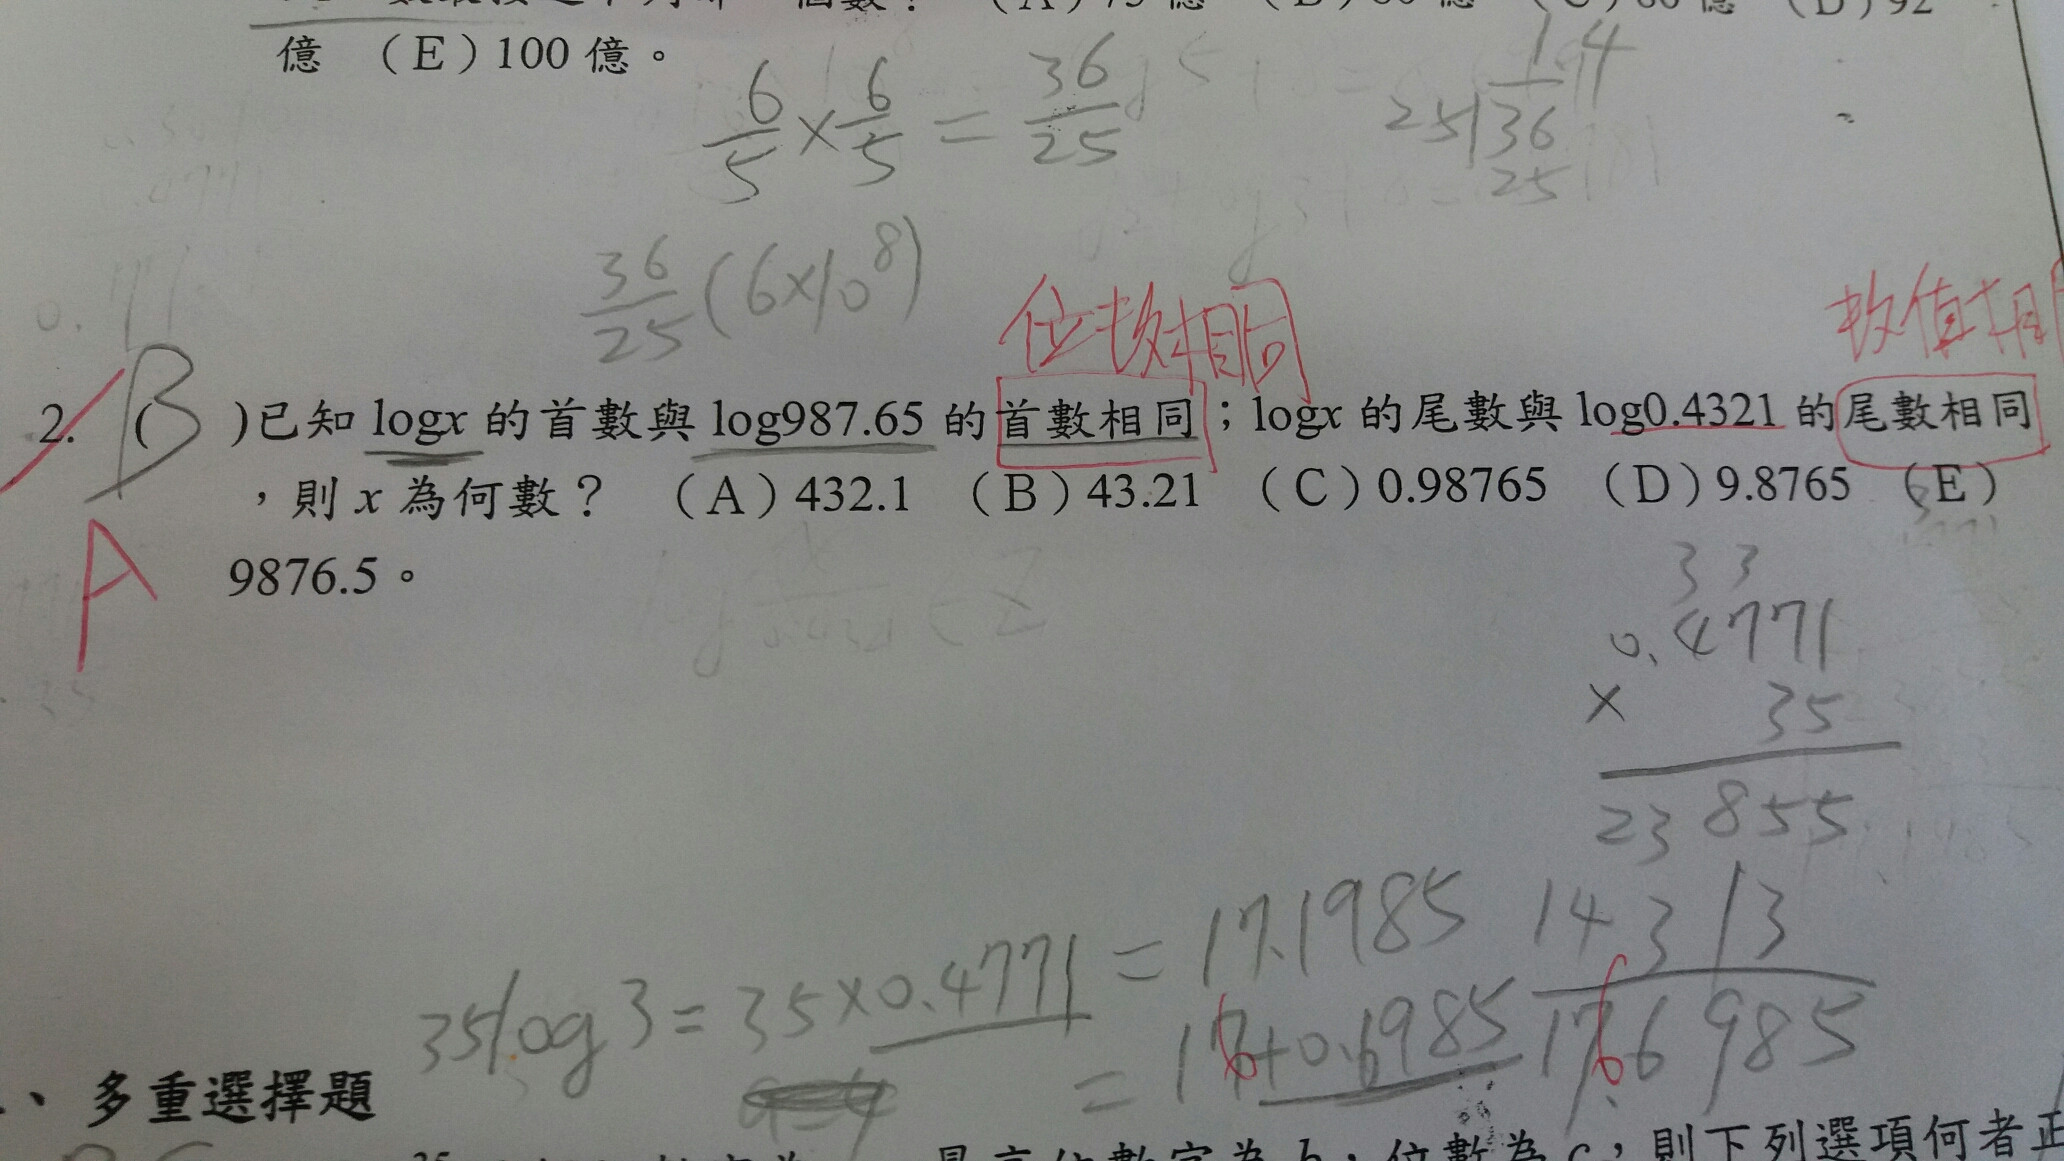 億 （E）100 億。
6/5 × 6/5 = 36/25
14
25 36
25
36/25 (6×10⁸)
位數相同
數值相同
2. (B)已知 logx 的首數與 log987.65 的首數相同；logx 的尾數與 log0.4321 的尾數相同
，則 x 為何數？ （A）432.1 （B）43.21 （C）0.98765 （D）9.8765 （E）
A
9876.5。
3 3
0.4771
× 35
23855
14313
176985
35log3 = 35×0.4771 = 17.1985
= 1 +0.6985
、多重選擇題
位數為 c，則下列選項何者正